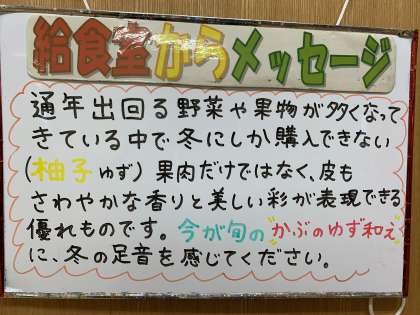 給食室からメッセージ
通年出回る野菜や果物が多くなって
きている中で冬にしか購入できない
(柚子 ゆず) 果肉だけではなく、皮も
さわやかな香りと美しい彩が表現できる
優れものです。今が旬の"かぶのゆず和え"
に、冬の足音を感じてください。